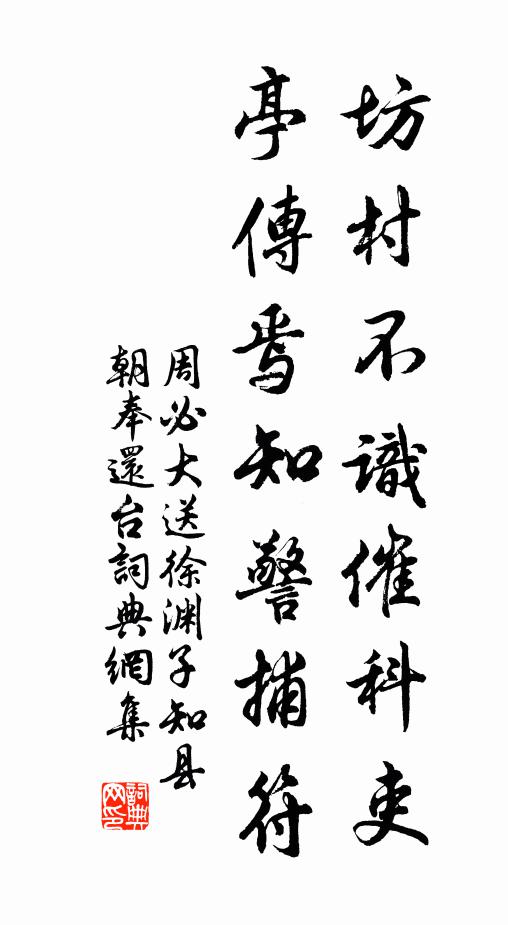 坊村不識催科吏
亭傳焉知警捕符
周必大送徐渊子知县
朝奉還台詞典網集
詞典网印